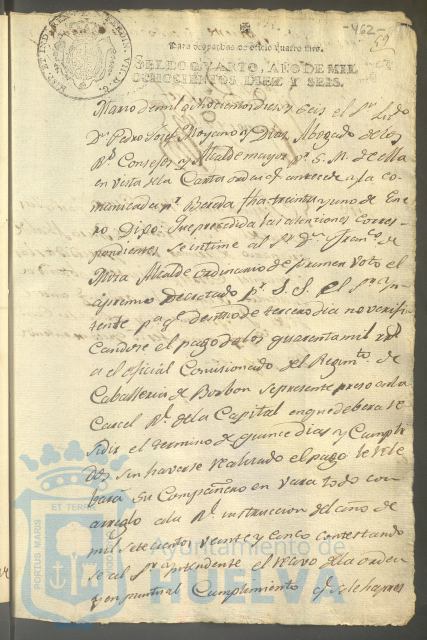 -462-
Para despachos de oficio quatro mrs.
SELLO QUARTO, AÑO DE MIL
OCHOCIENTOS DIEZ Y SEIS.
Marzo de mil ochocientos diez y seis el Sr. Lizdo
Dn. Pedro Josef Moyano y Dias, Abogado de los
Rs. Consejos y Alcalde mayor pr. S. M. de ella
en vista de la Carta orden qe. antecede y la co-
municada pr. Vereda fha treinta y uno de Ene-
ro Dijo: Que precedida las atenciones corres-
pondientes se intime al Sr. Dn. Franco. de
Mora Alcalde ordinario de primer voto el
apremio decretado pr. S. S. el Sr. In-
tente pa. qe. dentro de tercero dia no verifi-
candose el pago de los quarenta mil rs.
a el oficial Comisionado del Regimto. de
Caballeria de Borbon se presente preso en la
Carcel Rl. de la Capital en que debera re-
sidir el termino de quince dias y cumpli-
dos sin haverse realizado el pago se le lle-
bara su Compañero en vara todo con
arreglo a la Rl. instruccion del año de
mil setecientos veinte y cinco contestando
se al Sr. Intendente el recivo de la orden
y en puntual Cumplimiento
PORTUS MARIS
ET TERRAE
Ayuntamiento de
HUELVA